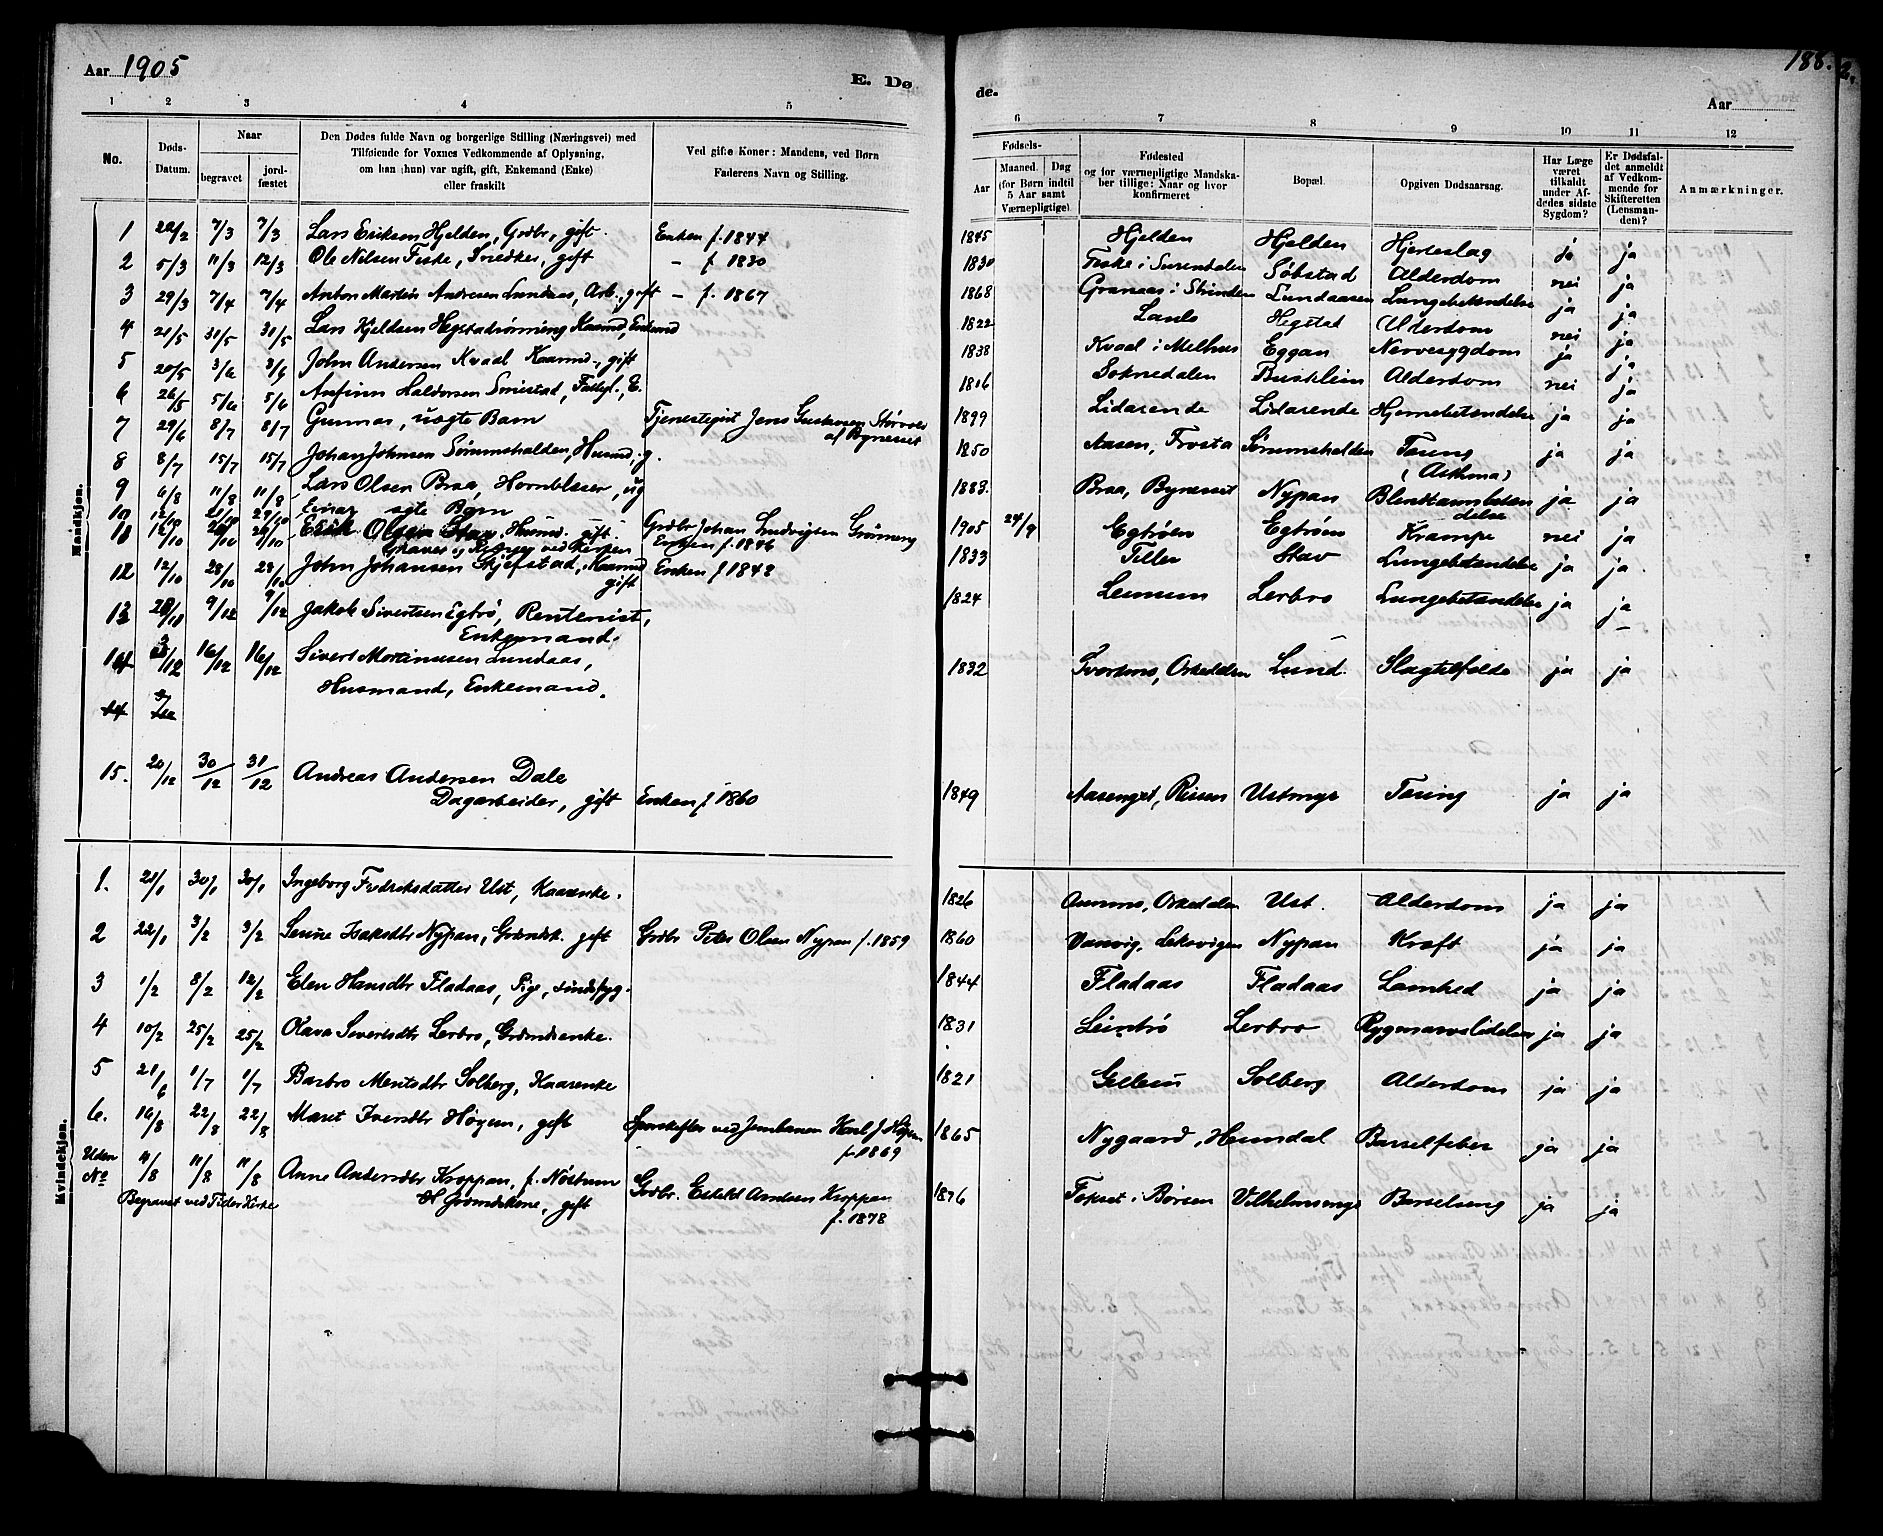 Aar 1905
E. Dø
de.
Aar
188.
1 2 3 4 5
6 7 8 9 10 11 12
No.
Døds-
Datum.
Naar
begravet
jord-
fæstet
Den Dødes fulde Navn og borgerlige Stilling (Næringsvei) med
Tilføiende for Voxnes Vedkommende af Oplysning,
om han (hun) var ugift, gift, Enkemand (Enke)
eller fraskilt
Ved gifte Koner: Mandens, ved Børn
Faderens Navn og Stilling.
Fødsels-
Aar
Maaned. Dag
(for Børn indtil
5 Aar samt
Værnepligtige).
Fødested
og for værnepligtige Mandska-
ber tillige: Naar og hvor
konfirmeret
Bopæl.
Opgiven Dødsaarsag.
Har Læge
været
tilkaldt
under Af-
dødes sidste
Sygdom?
Er Dødsfal-
det anmeldt
af Vedkom-
mende for
Skifteretten
(Lensman-
den)?
Anmærkninger.
Mandkjøn.
1 22/2 7/3 7/3 Lars Eriksen Hjelden, Grdbr, gift. Enken f. 1844 1845 Hjelden Hjelden Hjerteslag ja ja
2 5/3 11/3 12/3 Ole Nilsen Fiske, gift – f 1830 1830 Fiske i Surendalen Søbstad Alderdom nei ja
3 29/3 7/4 7/4 Anton Martin Andresen Lundaas, Arb., gift – f. 1867 1868 Granaas i Strinden Lundaasen Lungebetændelse ja ja
4 21/5 31/5 31/5 Lars Kjeldsen Hegstadrønning Kaarmd, Enkemd 1822 Hegstad Alderdom nei ja
5 20/5 3/6 3/6 John Andersen Kvaal Kaarmd., gift 1838 Kvaal i Melhus Eggan Nervesygdom ja ja
6 26/5 5/6 5/6 Anfinn Haldorsen Smistad, Fattigl., E. 1816 Soknedalen Busklein Alderdom nei ja
7 29/6 8/7 8/7 Gunnar, uægte Barn Tjenestegut Jens Gustavsen Størvold
af Bynesset 1899 Lidarende Lidarende Hjernebetændelse ja ja
8 8/7 15/7 15/7 Johan Johnsen Sørumshalden, Husmd, g. 1850 Aasen, Frosta Sørumshalden Tæring
(Asthma) ja ja
9 6/8 11/8 11/8 Lars Olsen Braa, Hornblæser, ug 1883. Braa, Bynesset Nypan Blindtarmbetæn
delse ja ja
10 Einar ægte Barn Grdbr Johan Ludvigsen Grønning 1905 24/9 Egtrøen Egtrøen Krampe nei ja
11 Erik Olsen Stav, Husmd. gift. Enken f. 1846 1833 Tiller Stav Lungebetændelse ja ja
12 12/10 28/10 28/10 John Johansen Skjefstad, Kaarmd
gift Enken f 1843 1824 Leinum Lerbro Lungebetændelse ja ja
13 9/12 9/12 Jakob Sivertsen Egtrø, Rentenist,
Enkemand.
14 16/12 16/12 Sivert Mortinusen Lundaas,
Husmand, Enkemand. 1832 Orkedalen Lund. Slagtilfælde ja ja
14
15. 20/12 30/12 31/12 Andreas Andersen Dale
Dagarbeider, gift Enken f 1860 1849 Aasenget, Rissen Ustmyr Tæring ja ja
Kvindekjøn.
1. 21/1 30/1 30/1 Ingeborg Fredriksdatter Ust, Kaarenke. 1826 Orkedalen Ust. Alderdom ja ja
2 22/1 3/2 3/2 Serine Isaksdtr Nypan, Grdmdsk. gift Grdbr Peter Olsen Nypan f. 1859 1860 Vanvig, Leksvigen Nypan Kræft ja ja
3 1/2 8/2 12/2 Elen Hansdtr Fladaas, Pige, sindssyg. 1844 Fladaas Fladaas Lamhed ja ja
4 10/2 25/2 25/2 Olava Sivertsdtr Lerbro, Grdmdsenke. 1831 Leintrø Lerbro Rygmarvslidelse ja ja
5 21/6 1/7 1/7 Barbro Mentsdtr Solberg, Kaarenke 1821 Gellein Solberg Alderdom ja ja
6. 16/8 22/8 22/8 Maret Iversdtr Høyem, gift Sporskifter ved Jernbanen Karl J. Høyem
f. 1869 1865 Nygaard, Heimdal Barselfeber ja ja
Uden
No 4/8 11/8 11/8 Anne Andersdtr Kroppan, f. Nøstrum
Grdmdskone, gift Grdbr. Estekl Arntsen Kroppan
f. 1878 1876 Fokset i Børsen Vilhelmsenge Barselseng ja ja
Begravet ved Tiller Kirke